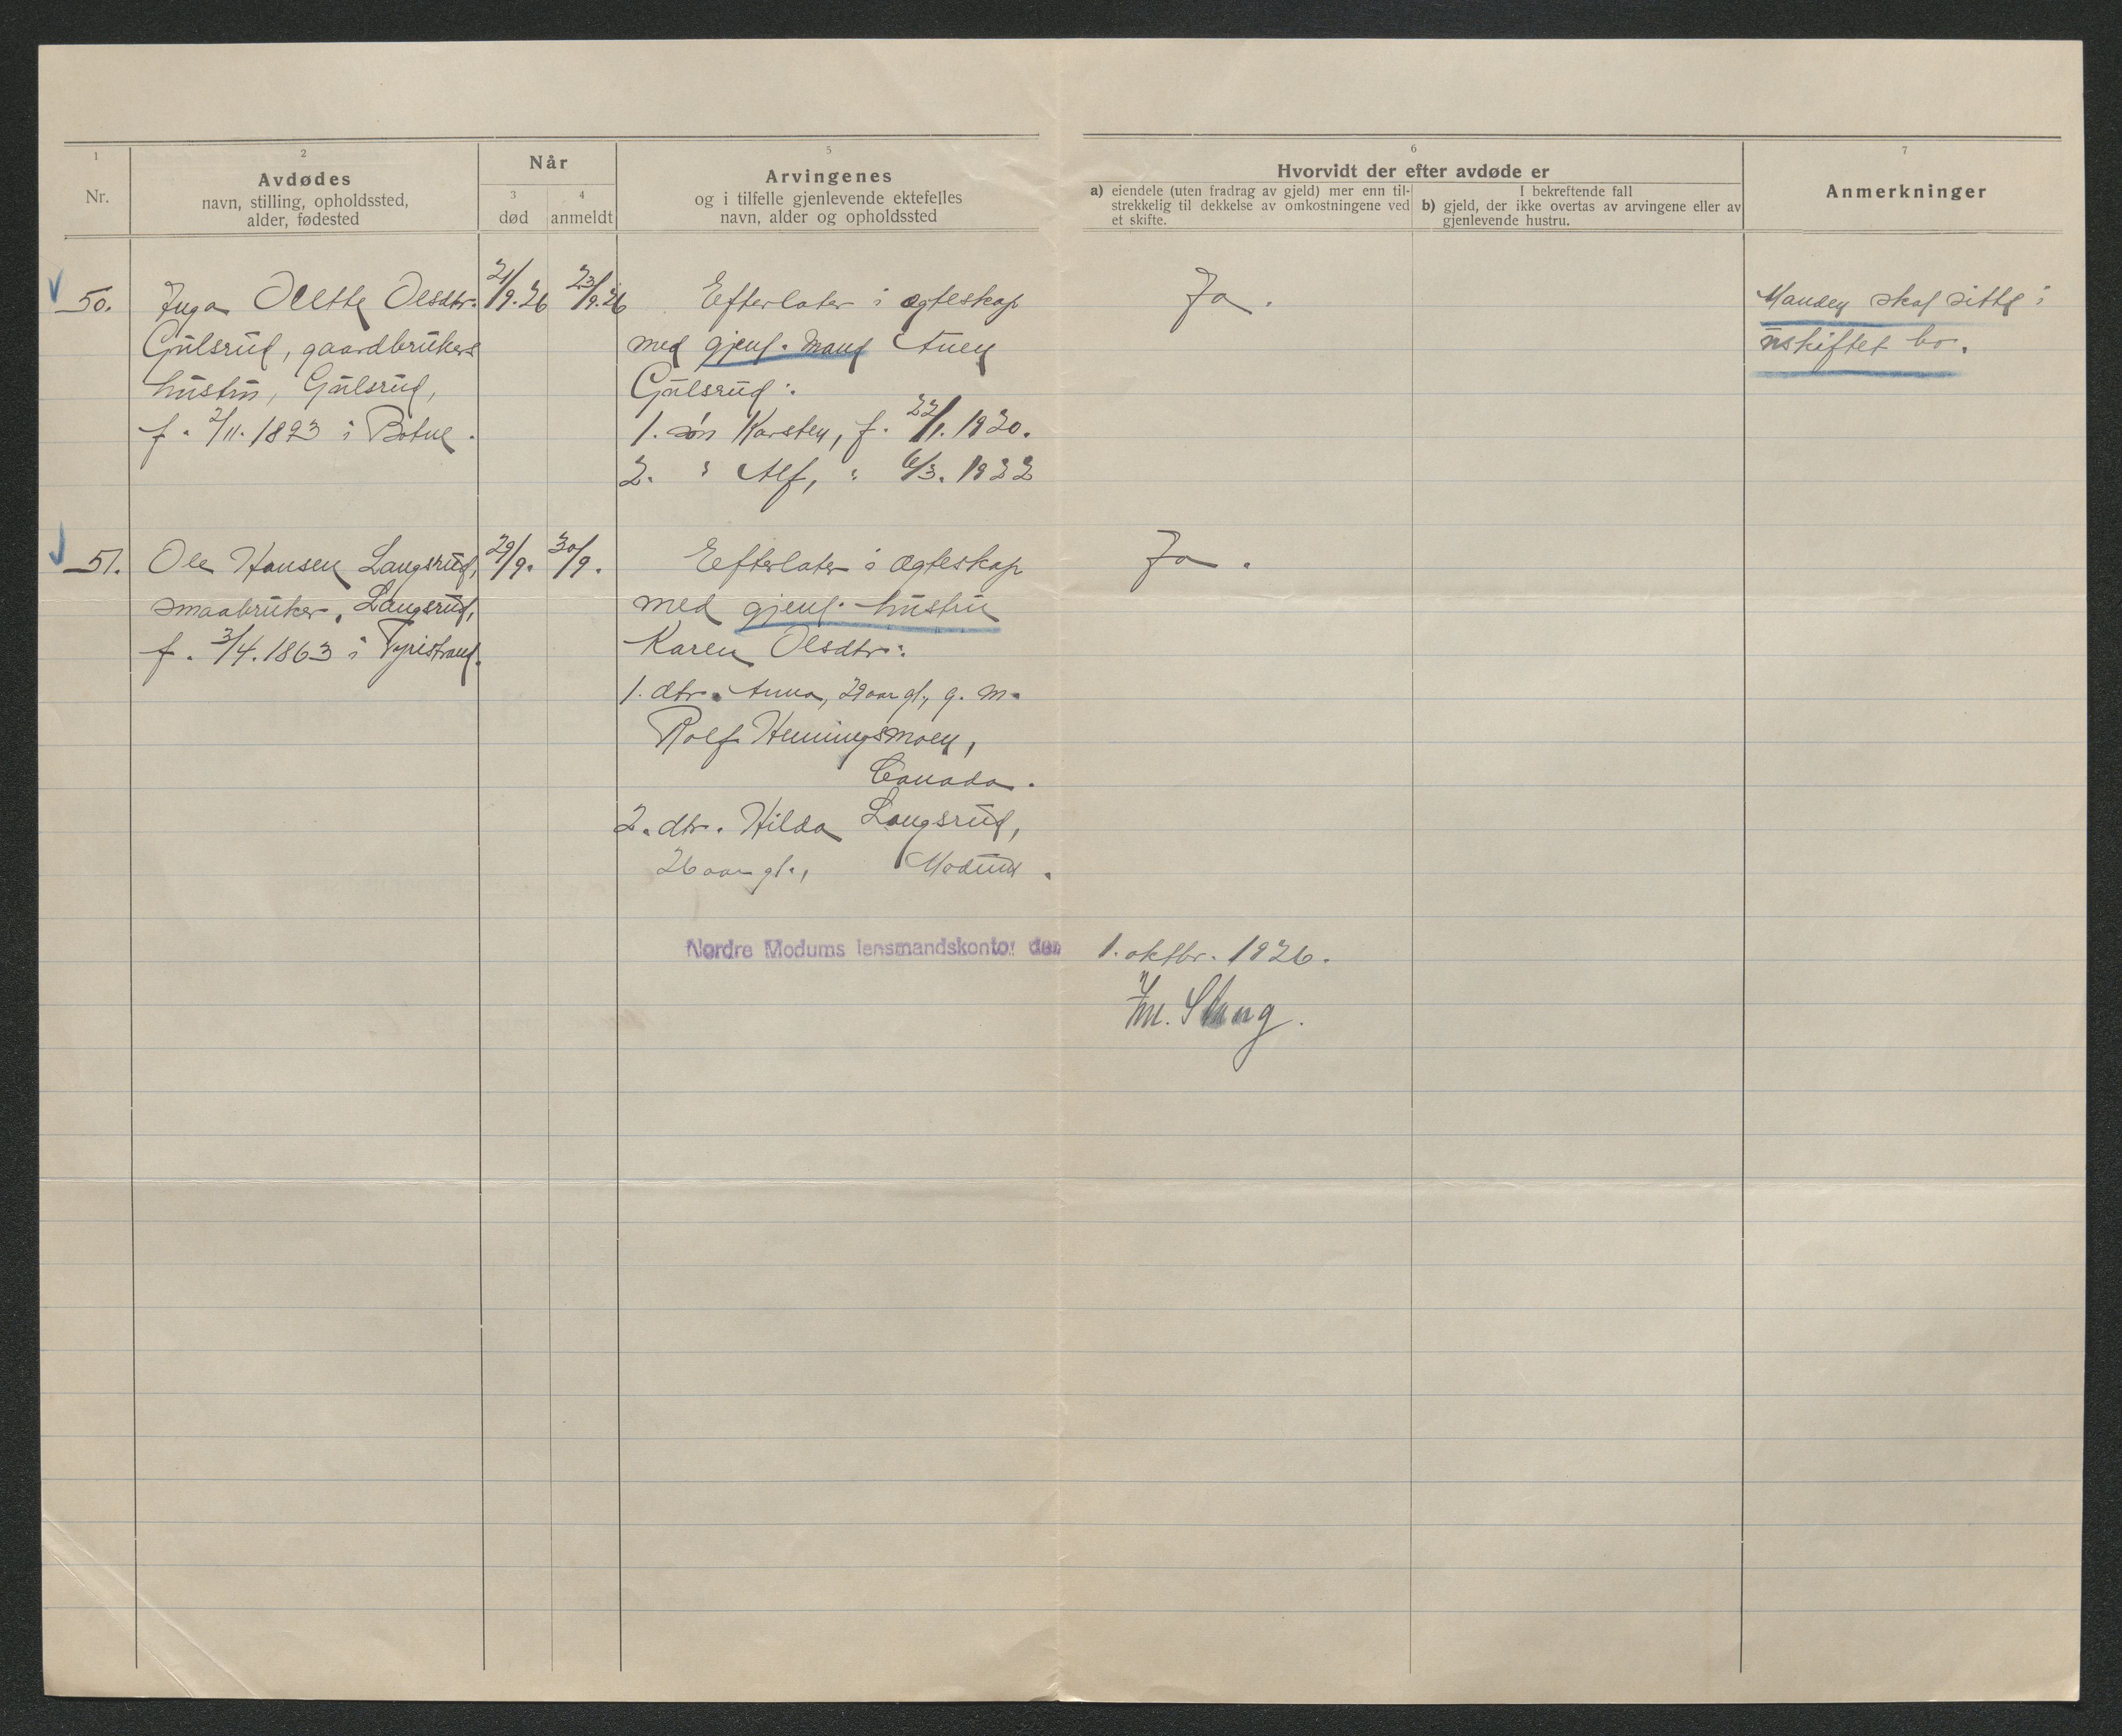 1
Nr.
2
Avdødes
navn, stilling, opholdssted,
alder, fødested
Når
3
død
4
anmeldt
5
Arvingenes
og i tilfelle gjenlevende ektefelles
navn, alder og opholdssted
6
Hvorvidt der efter avdøde er
a) eiendele (uten fradrag av gjeld) mer enn til-
strekkelig til dekkelse av omkostningene ved
et skifte.
I bekreftende fall
b) gjeld, der ikke overtas av arvingene eller av
gjenlevende hustru.
7
Anmerkninger
50.
Inga Olette Olsdtr.
Gulsrud, gaardbrukers
hustru, Gulsrud,
f. 2/11. 1893 i Botne.
21/9. 26
23/9. 26
Efterlater i ægteskap
med gjenl. mand Anen
Gulsrud:
1. søn Karsten, f. 22/1. 1920.
2. " Alf, " 6/3. 1922
Ja.
Manden skal sitte i
uskiftet bo.
51.
Ole Hansen Langsrud,
smaabruker, Langsrud,
f. 3/4. 1863 i Tyristrand.
29/9.
30/9.
Eefterlater i ægteskap
med gjenl. hustru
Karen Olsdtr.:
1. dtr. Anna, 29 aar gl., g. m.
Rolf Henningsmoen,
Canada.
2. dtr. Hilda Langsrud,
26 aar gl., Modum.
Ja.
Nordre Modums lensmandskontor den
1. oktbr. 1926.
Slang.